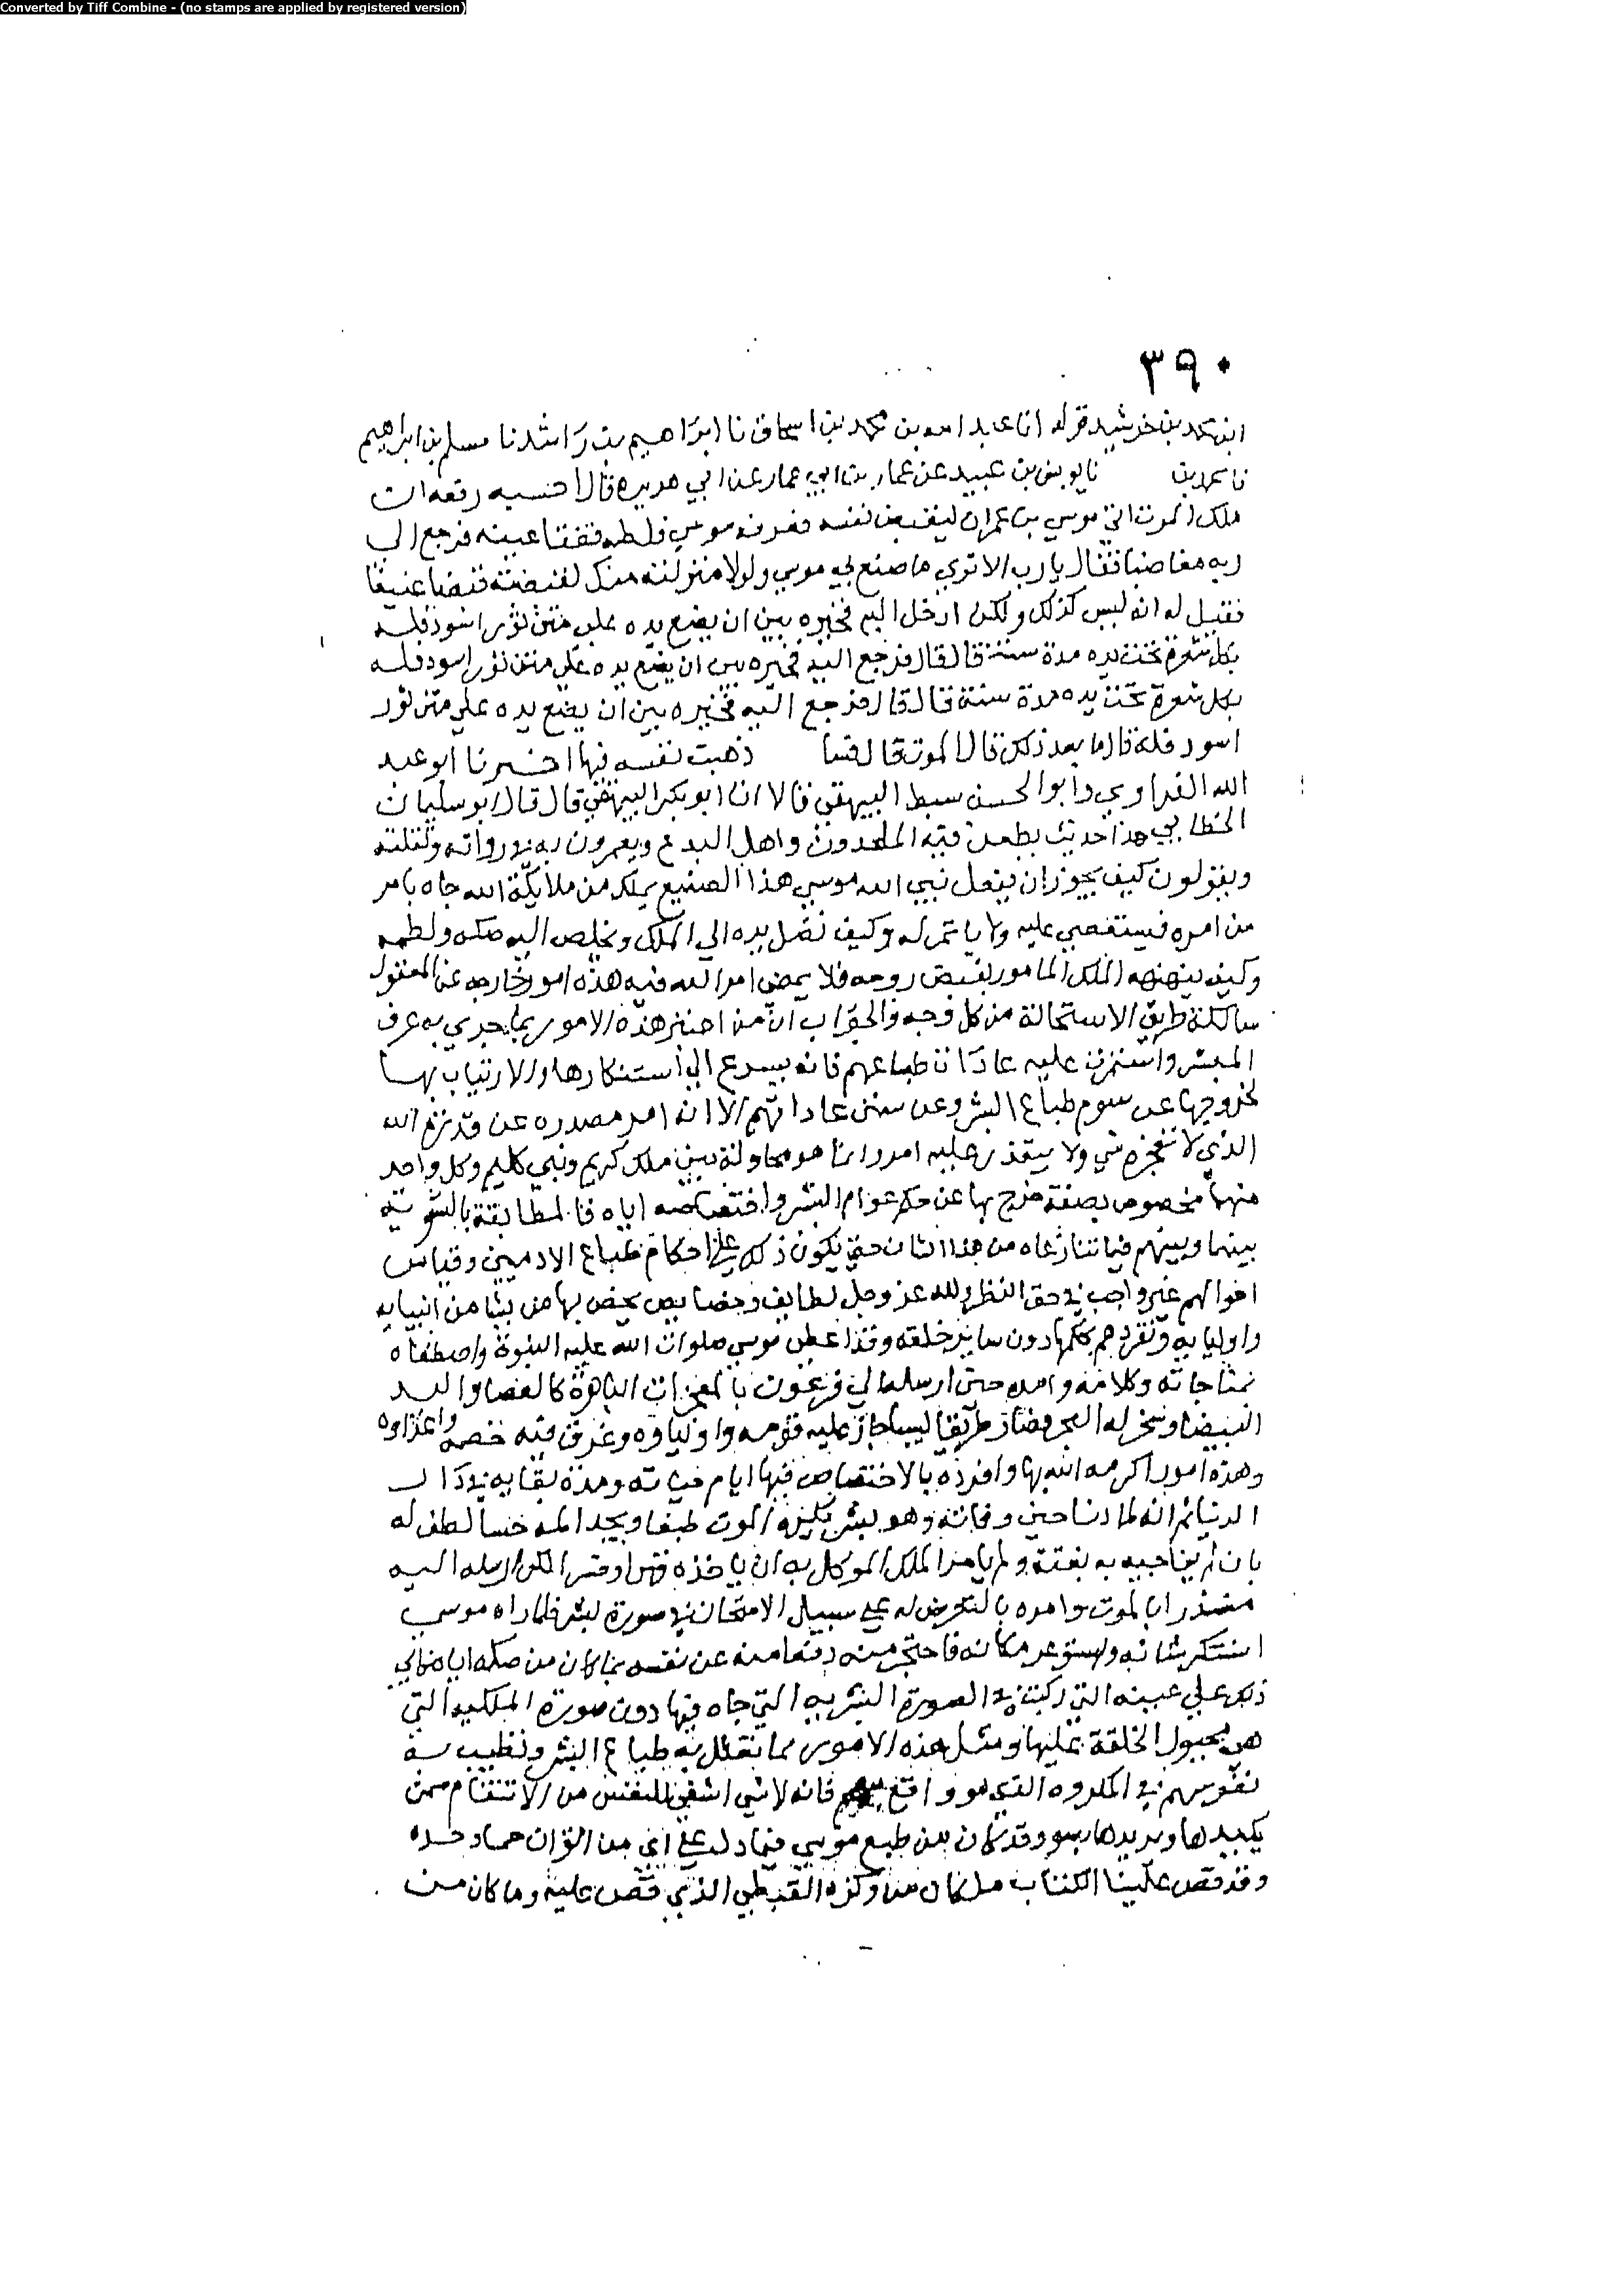 Converted by Tiff Combine - (no stamps are applied by registered version)
٣٩٠
ابن محمد بن خرشيد قوله انا عبد الله بن محمد بن اسحاق نا ابراهيم بن راشد نا مسلم بن ابراهيم
نا محمد بن نا يونس بن عبيد عن عمار بن ابي عمار عن ابي هريرة قال احسبه رفعه ان
ملك الموت اتي موسي بن عمران ليقبض نفسه فعرفه موسي فلطمه ففقا عينه فرجع الي
ربه مغاضبا فقال يارب الا تري ما صنع بي موسي ولولا منزلته منك لقبضته قبضا عنيفا
فقيل له انه ليس كذلك ولكن ارحل اليه فخيره بين ان يضع يده علي متن ثور اسود فله
بكل شعرة تحت يده مدة سنة قال قال فرجع اليه فخيره بين ان يضع يده علي متن ثور اسود فله
بكل شعرة تحت يده مدة سنة قال قال فرجع اليه فخيره بين ان يضع يده علي متن ثور
اسود فله قال ما بعد ذلك قال الموت قال فشا ذهبت نفسه فيها اخبرنا ابو عبد
الله الفراوي وابو الحسن سبط البيهقي قالا انا ابو بكر البيهقي قال قال ابو سليمان
الخطابي هذا حديث يطعن فيه الملحدون واهل البدع ويغمرون به في رواته ونقلته
ويقولون كيف يجوز ان يفعل نبي الله موسي هذا الصنيع بملك من ملايكة الله جاه بامر
من امره فيستعصي عليه ولا ياتمر له وكيف تصل يده الي الملك ويخلص اليه صكه ولطمه
وكيف ينهنهه الملك المامور بقبض روحه فلا يمضي امر الله فيه هذه امور خارجه عن المعقول
سالكة طريق الاستحالة من كل وجه والجواب ان من اعتبر هذه الامور بما يجري به عرف
البشر واستمرت عليه عادات طباعهم فانه يسرع الي استنكارها والارتياب بها
لخروجها عن سوم طباع البشر وعن سنن عاداتهم الا انه امر مصدره عن قدرة الله
الذي لا يعجزه شي ولا يتعذر عليه امر وانما هو محاولة بين ملك كريم ونبي كليم وكل واحد
منهما مخصوص بصفة خرج بها عن حكم عوام البشر واختصاصه اياه فالمطابقة بالتسوية
بينهما وبينهم فيما تنازعاه من هذا الشان حتي يكون ذلك علي احكام طباع الادميين وقياس
احوالهم غير واجب في حق النظر ولله عز وجل لطايف وخصايص يخص بها من يشا من انبيايه
واوليايه ويفردهم بحكمها دون ساير خلقه وقد اعطي موسي صلوات الله عليه النبوة واصطفاه
بمناجاته وكلامه وامده حين ارسله الي فرعون بالمعجزات الباهرة كالعصا واليد
البيضا وسخر له البحر فصار طريقا يبسا جاز عليه قومه واولياوه وغرق فيه خصمه واعداوه
وهذه امور اكرمه الله بها وافرده بالاختصاص فيها ايام حياته ومدة بقايه في دار
الدنيا ثم انه لما دنا حين وفاته وهو بشر يكره الموت طبعا ويجد المه حسا لطف له
بان لم يفاجيه به بغتة ولم يامر الملك الموكل به ان ياخذه قهرا وقسرا لكن ارسله اليه
منذرا بالموت وامره بالتعرض له علي سبيل الامتحان في صورة بشر فلما راه موسي
استنكر شانه واستوعر مكانه فاحتجز منه دفعا منه عن نفسه بما كان من صكه اياه فاتي
ذلك علي عينه التي ركبت في الصورة البشريه التي جاه فيها دون صورة الملكيه التي
هو مجبول الخلقة عليها ومثل هذه الامور مما تعلل به طباع البشر وتطيب به
نفوسهم في المكروه الذي هو واقع بهم فانه لا شي اشفي للنفس من الانتقام ممن
يكيدها ويريدها بسو وقد كان من طبع موسي فيما دل علي اي من القران حما وحده
وقد قص علينا الكتاب ما كان من وكزه القبطي الذي قص عليه وما كان من